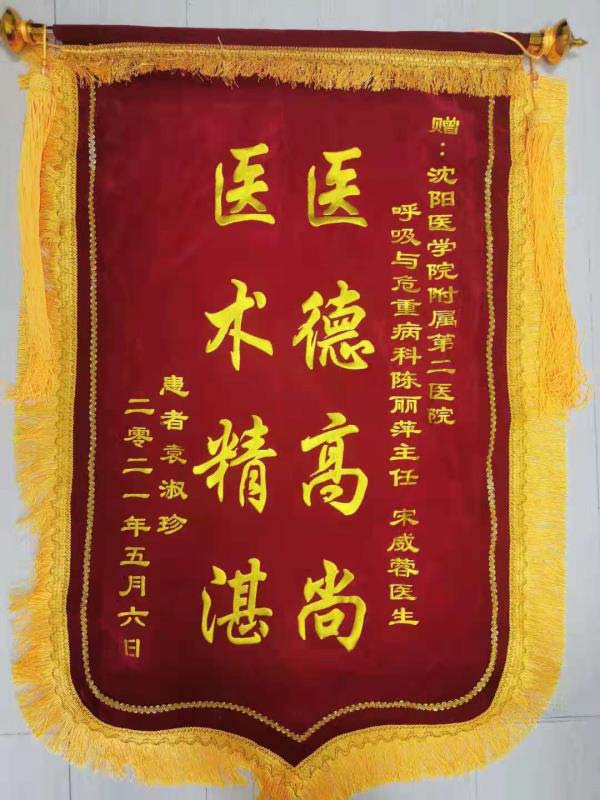 赠：沈阳医学院附属第二医院
呼吸与危重病科陈丽萍主任 宋威蓉医生
医德高尚
医术精湛
患者袁淑珍
二零二一年五月六日